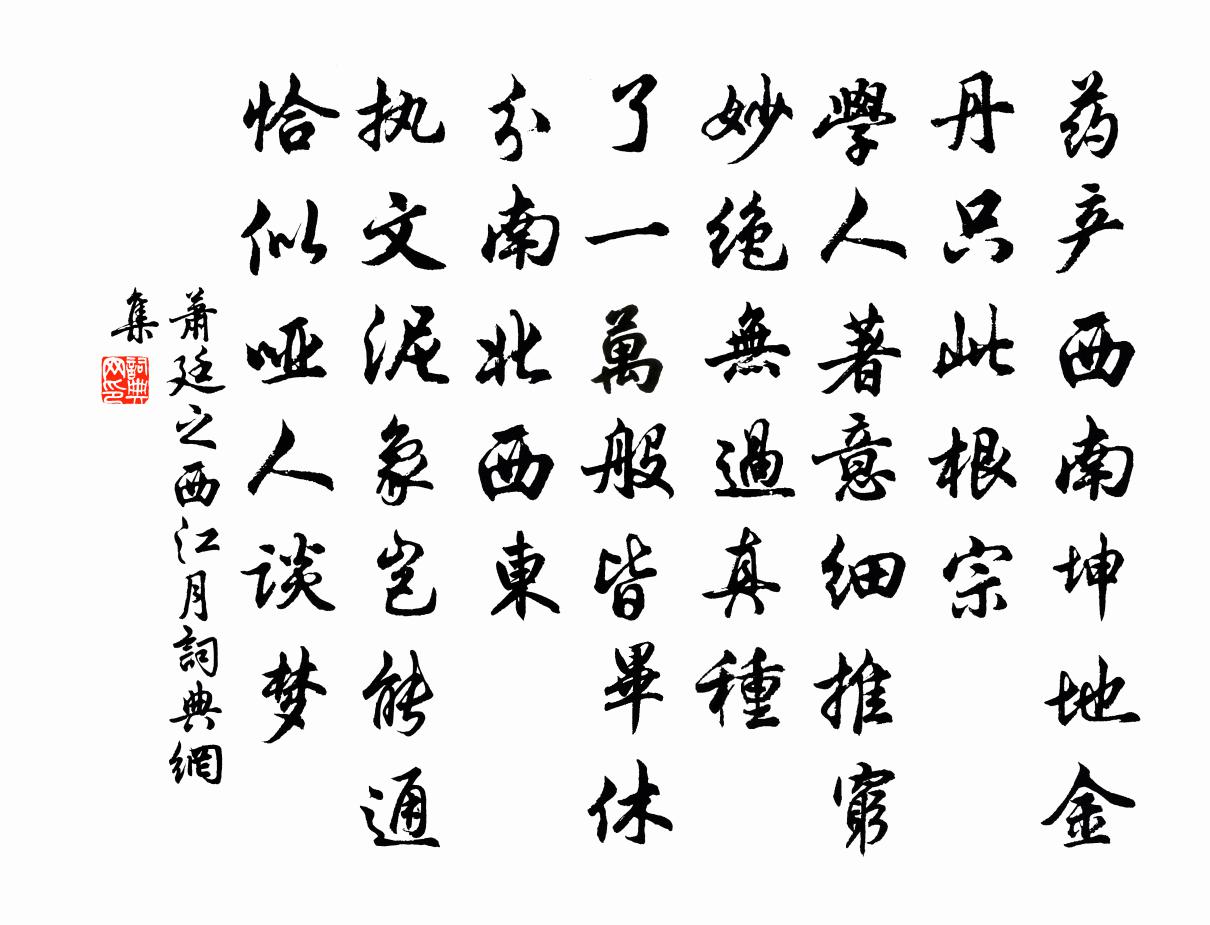 药产西南坤地金
丹只此根宗
學人著意细推窮
妙绝無過真種
了一萬般皆畢休
分南北西東
执文泥象岂能通
恰似哑人谈梦
萧廷之西江月詞典網
集
詞典
网印